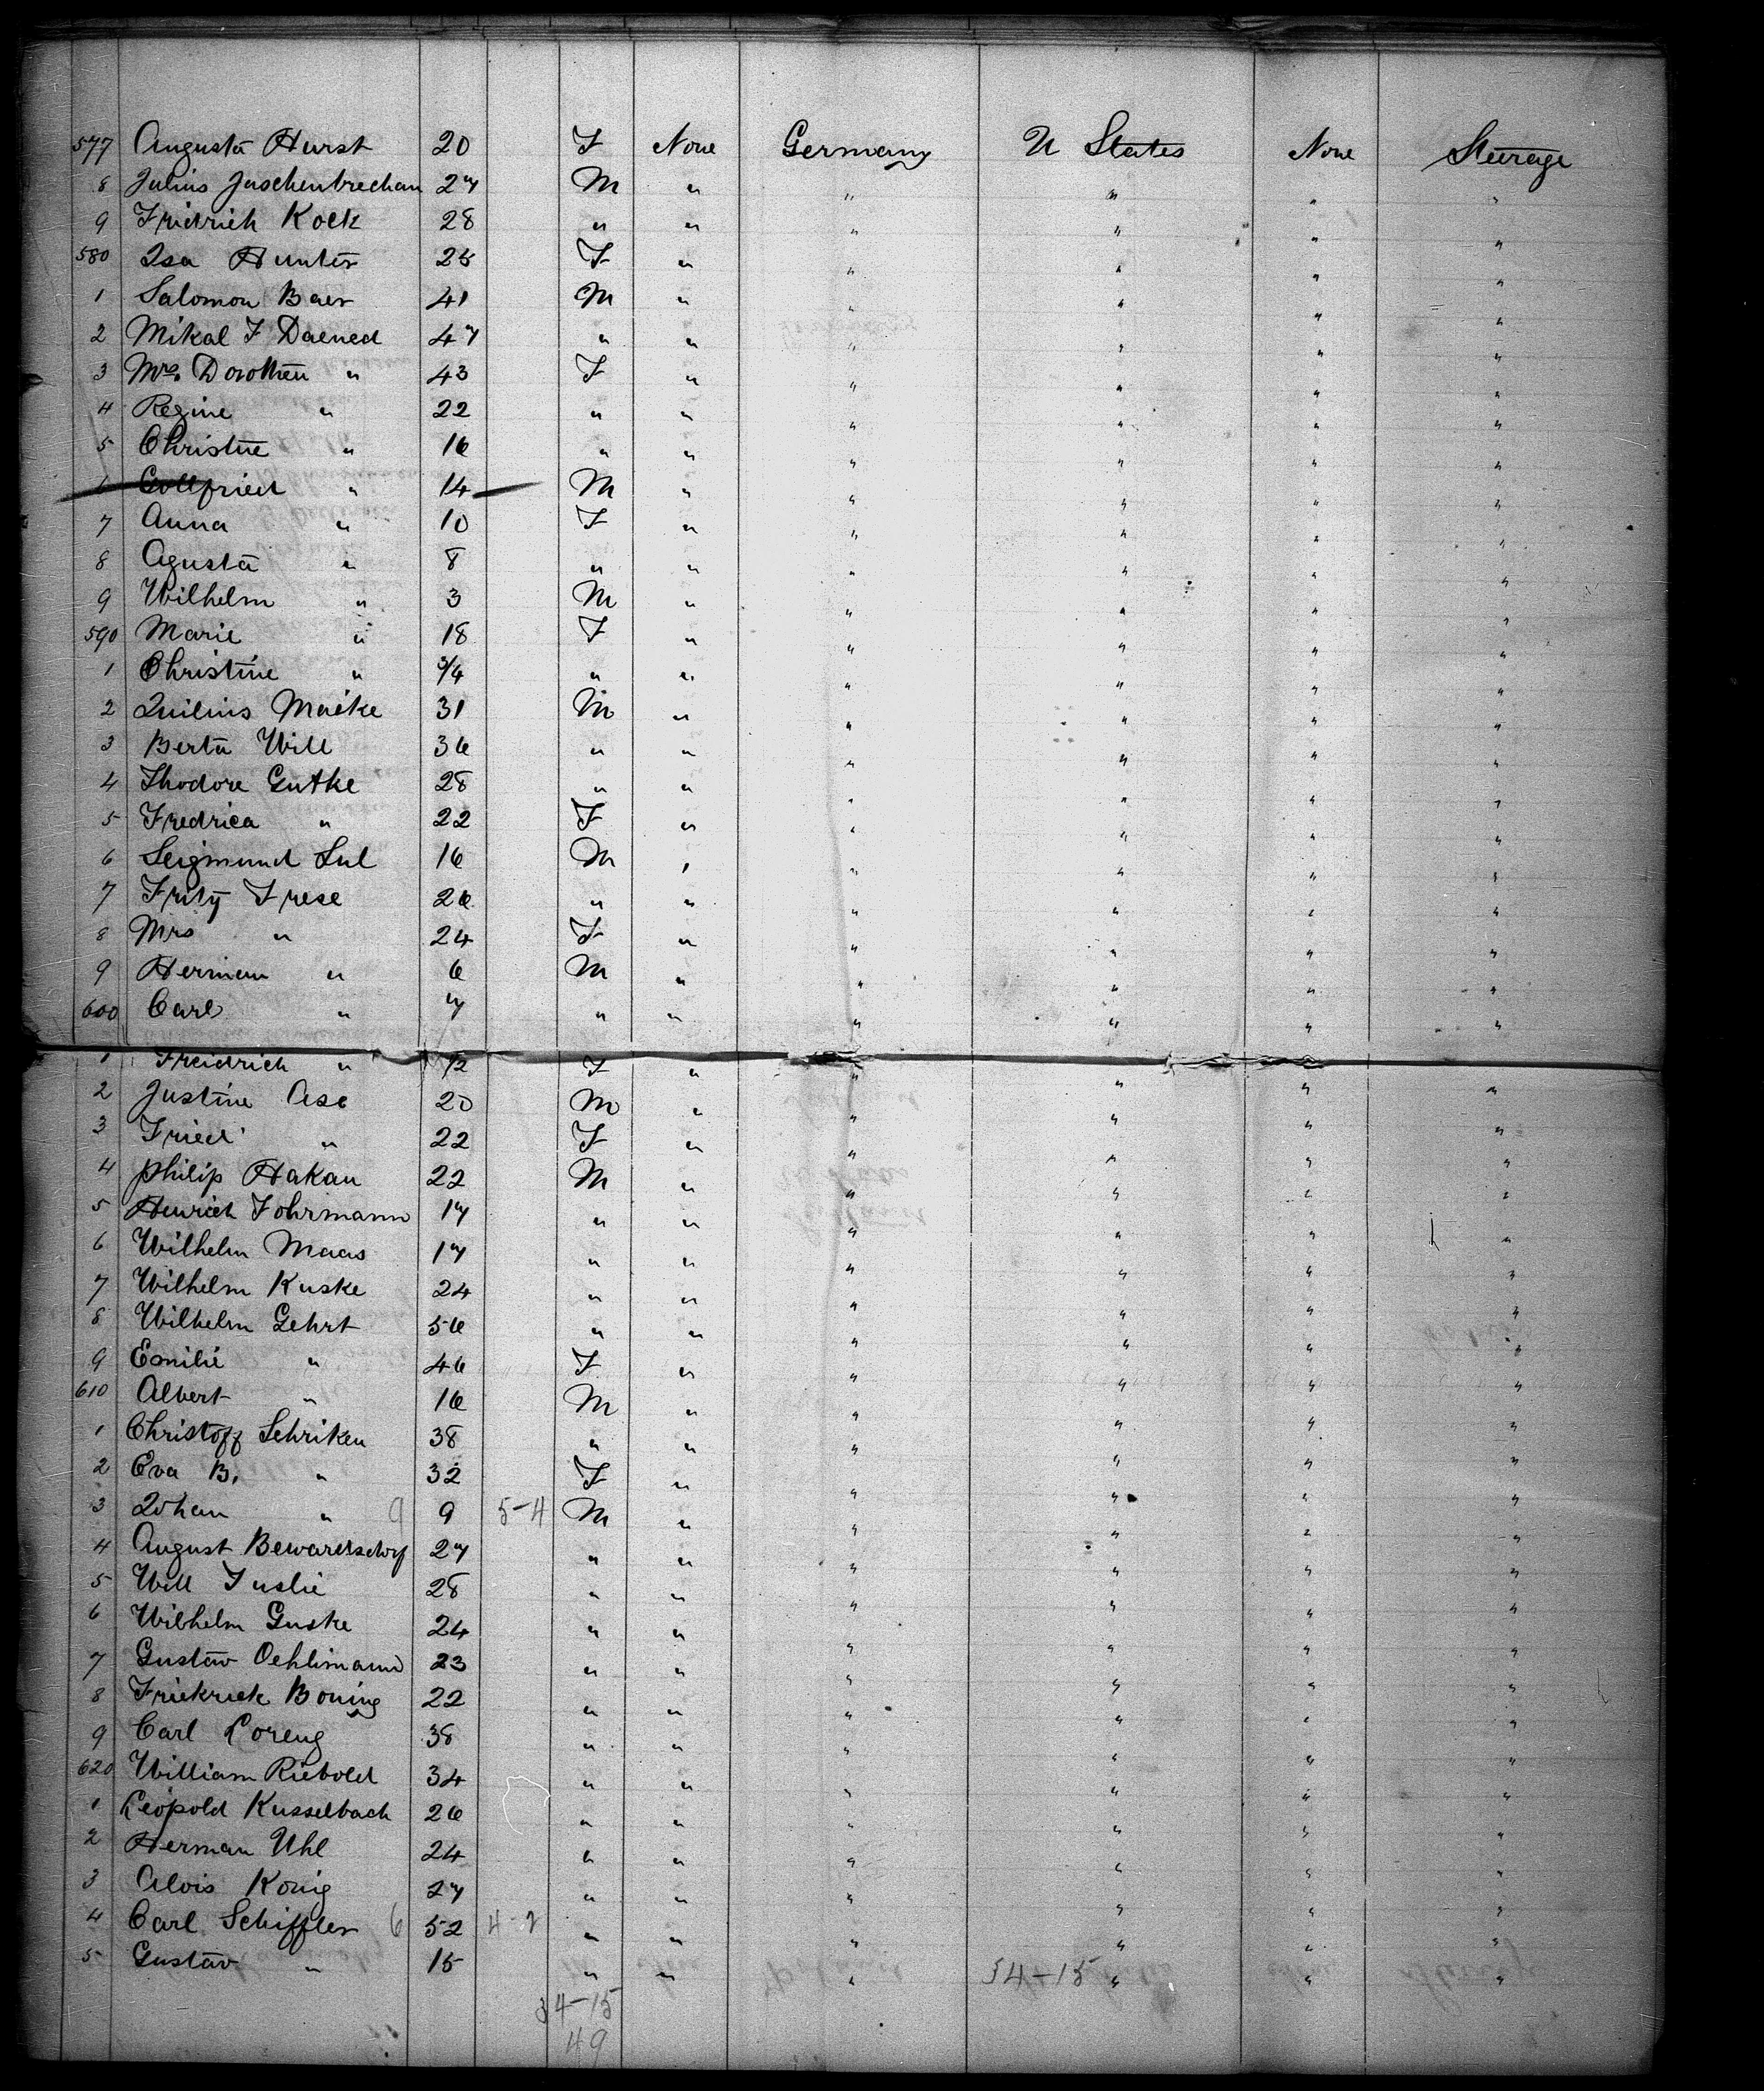 577 Augusta Hurst 20 F None Germany U States None Steerage
8 Julius Juschenbrechan 27 M " " " " "
9 Fridrich Kock 28 " " " " " "
580 Isa Hunter 25 F " " " " "
1 Salomon Baer 41 M " " " " "
2 Mikal F Daened 47 " " " " " "
3 Mrs Dorothea " 43 F " " " " "
4 Regine " 22 " " " " " "
5 Christine " 16 " " " " " "
6 Gottfried " 14 M " " " " "
7 Anna " 10 F " " " " "
8 Agusta " 8 " " " " " "
9 Wilhelm " 3 M " " " " "
590 Marie " 18 F " " " " "
1 Christine " 3/4 " " " " " "
2 Quilius Macke 31 M " " " " "
3 Berta Will 36 " " " " " "
4 Thodore Gutke 28 " " " " " "
5 Fredrica " 22 F " " " " "
6 Seigmund Lul 16 M " " " " "
7 Fritz Frese 26 " " " " " "
8 Mrs " 24 F " " " " "
9 Herman " 6 M " " " " "
600 Carl " 7 " " " " " "
1 Freidrich " 1/2 F " " " " "
2 Justine Ase 20 M " " " " "
3 Fried " 22 F " " " " "
4 Philip Hakan 22 M " " " " "
5 Heinrich Fohrmann 17 " " " " " "
6 Wilhelm Maas 17 " " " " " "
7 Wilhelm Kuske 24 " " " " " "
8 Wilhelm Gehrt 56 " " " " " "
9 Emilie " 46 F " " " " "
610 Albert " 16 M " " " " "
1 Christoff Schriken 38 " " " " " "
2 Eva B. " 32 F " " " " "
3 Johan " 9 9 5-4 M " " " " "
4 August Bewarelsdorf 27 " " " " " "
5 Will Fuslie 28 " " " " " "
6 Wilhelm Guske 24 " " " " " "
7 Gustav Oehlimann 23 " " " " " "
8 Friekrick Boning 22 " " " " " "
9 Carl Loreng 38 " " " " " "
620 William Riebold 34 " " " " " "
1 Leopold Kusselbach 26 " " " " " "
2 Herman Uhl 24 " " " " " "
3 Alois Konig 27 " " " " " "
4 Carl Schiffler 6 52 4-2 " " " " " "
5 Gustav " 15 " " " 34-15 " " "
34-15
49